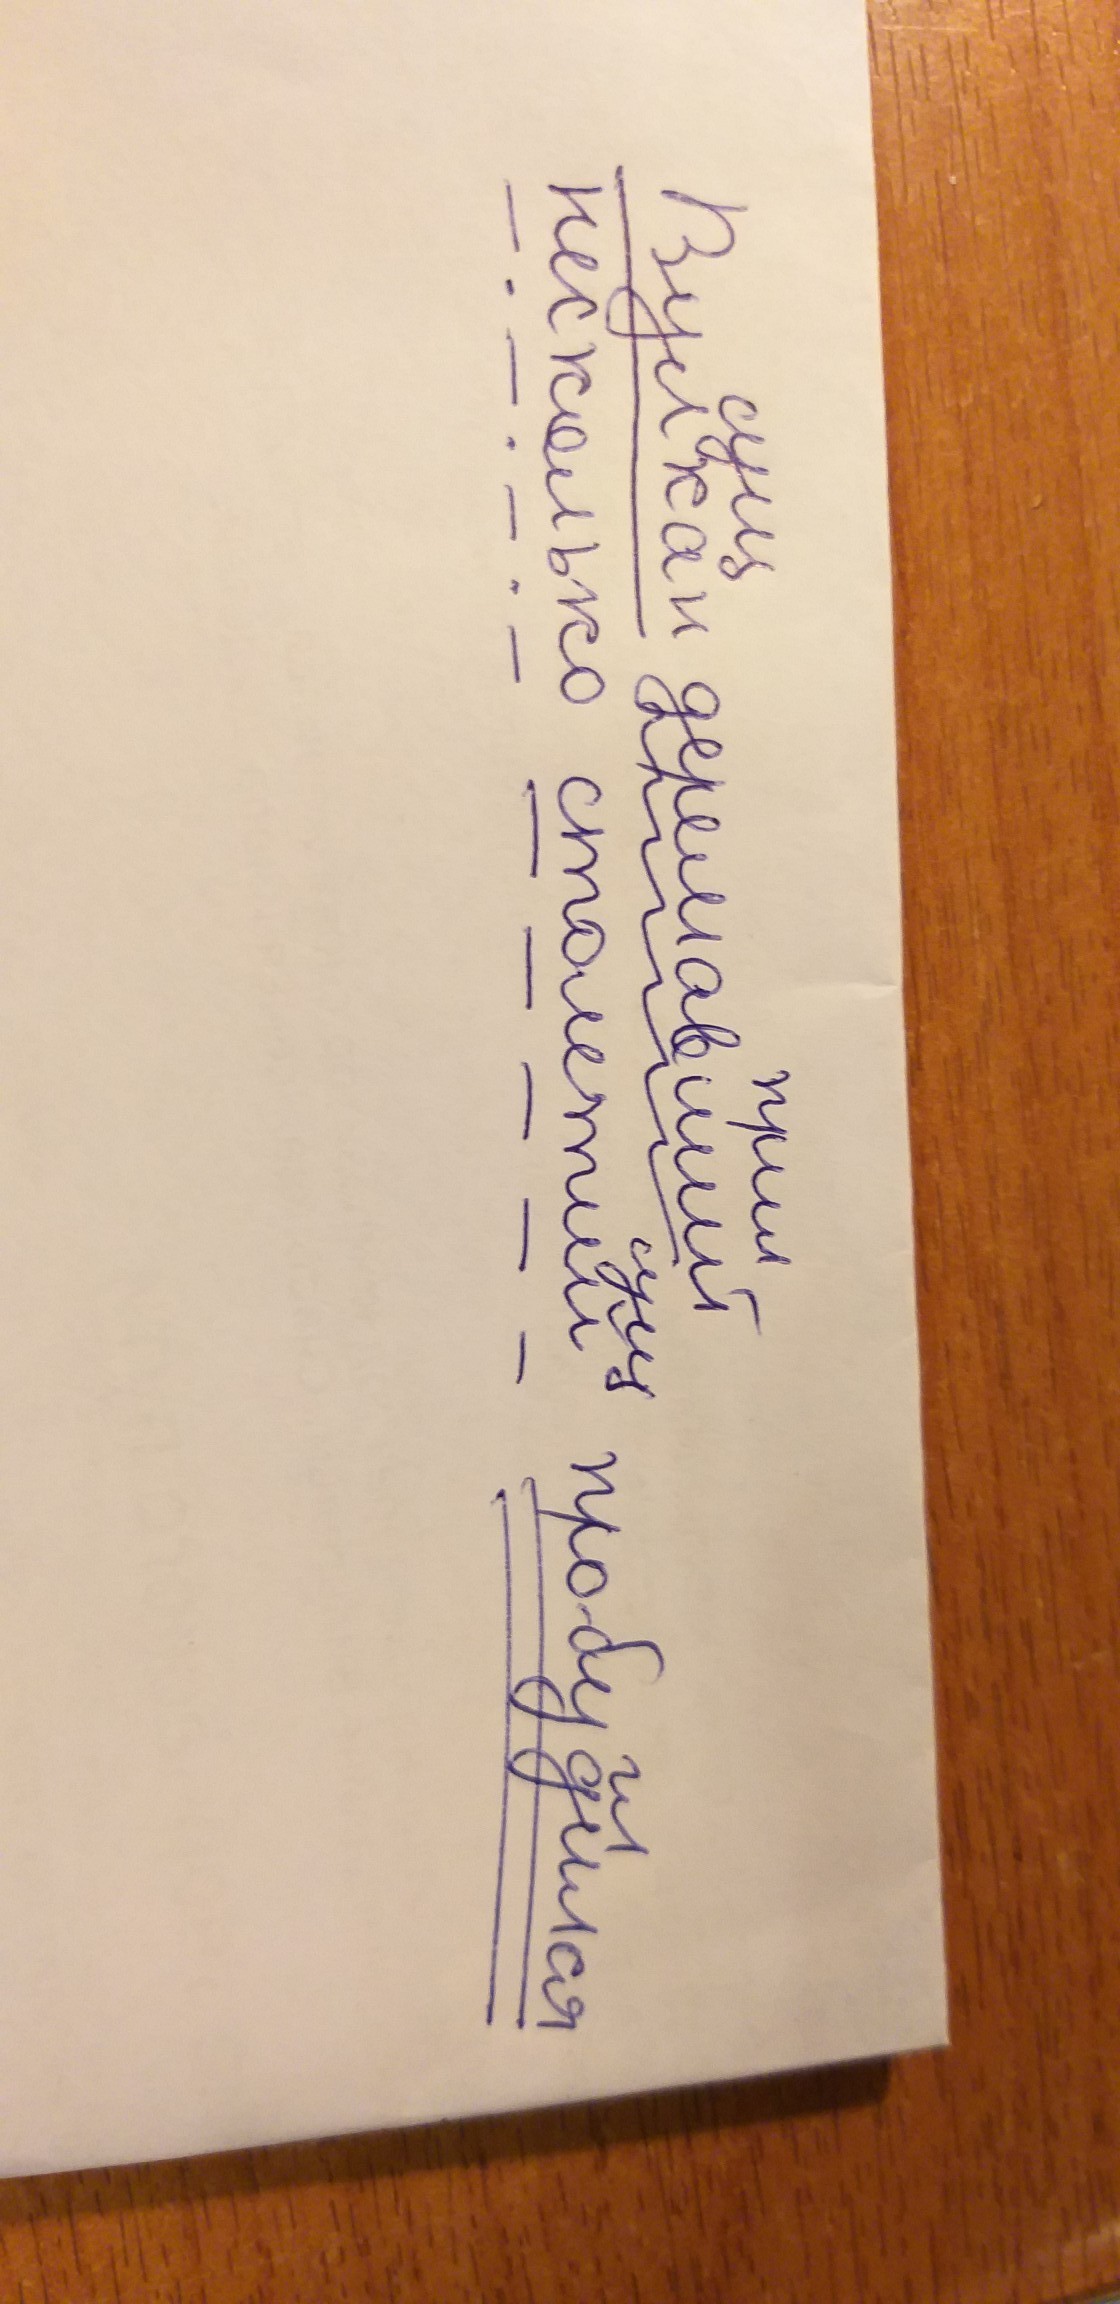 сущ прил
Вулкан дремавший
сущ гл
несколько столетий пробудился